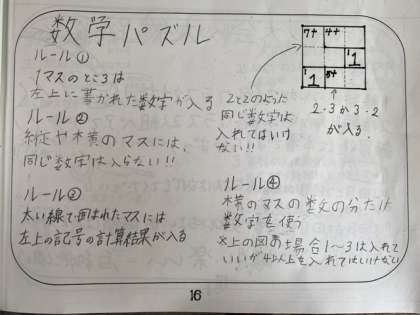 数学パズル
ルール①
1マスのところは
左上に書かれた数字が入る
ルール②
縦や横のマスには、
同じ数字は入らない!!
ルール③
太い線で囲まれたマスには
左上の記号の計算結果が入る
7+ 4+
1 1
1 1 5+
2と2のように
同じ数字は
入れてはいけ
ない!!
2・3か3・2
が入る.
ルール④
横のマスの数の分だけ
数字を使う
※上の図の場合1〜3は入れて
いいが4以上を入れてはいけない
16